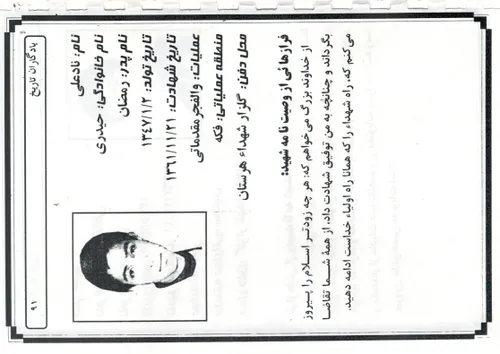 یادگاران تاریخ
نام: نادعلی
نام خانوادگی: حیدری
نام پدر: رمضان
تاریخ تولد: ۱۳۴۷/۱/۲
تاریخ شهادت: ۱۳۶۱/۱۱/۲۱
عملیات: والفجر مقدماتی
منطقه عملیاتی: فکه
محل دفن: گلزار شهداء هرستان
فرازهائی از وصیت نامه شهید:
از خداوند بزرگ می خواهم که: هر چه زودتر اسلام را پیروز
بگرداند و چنانچه به من توفیق شهادت داد، از همهٔ شما تقاضا
می کنم که، راه شهداء را که همانا راه اولیاء خداست ادامه دهید.
۹۱